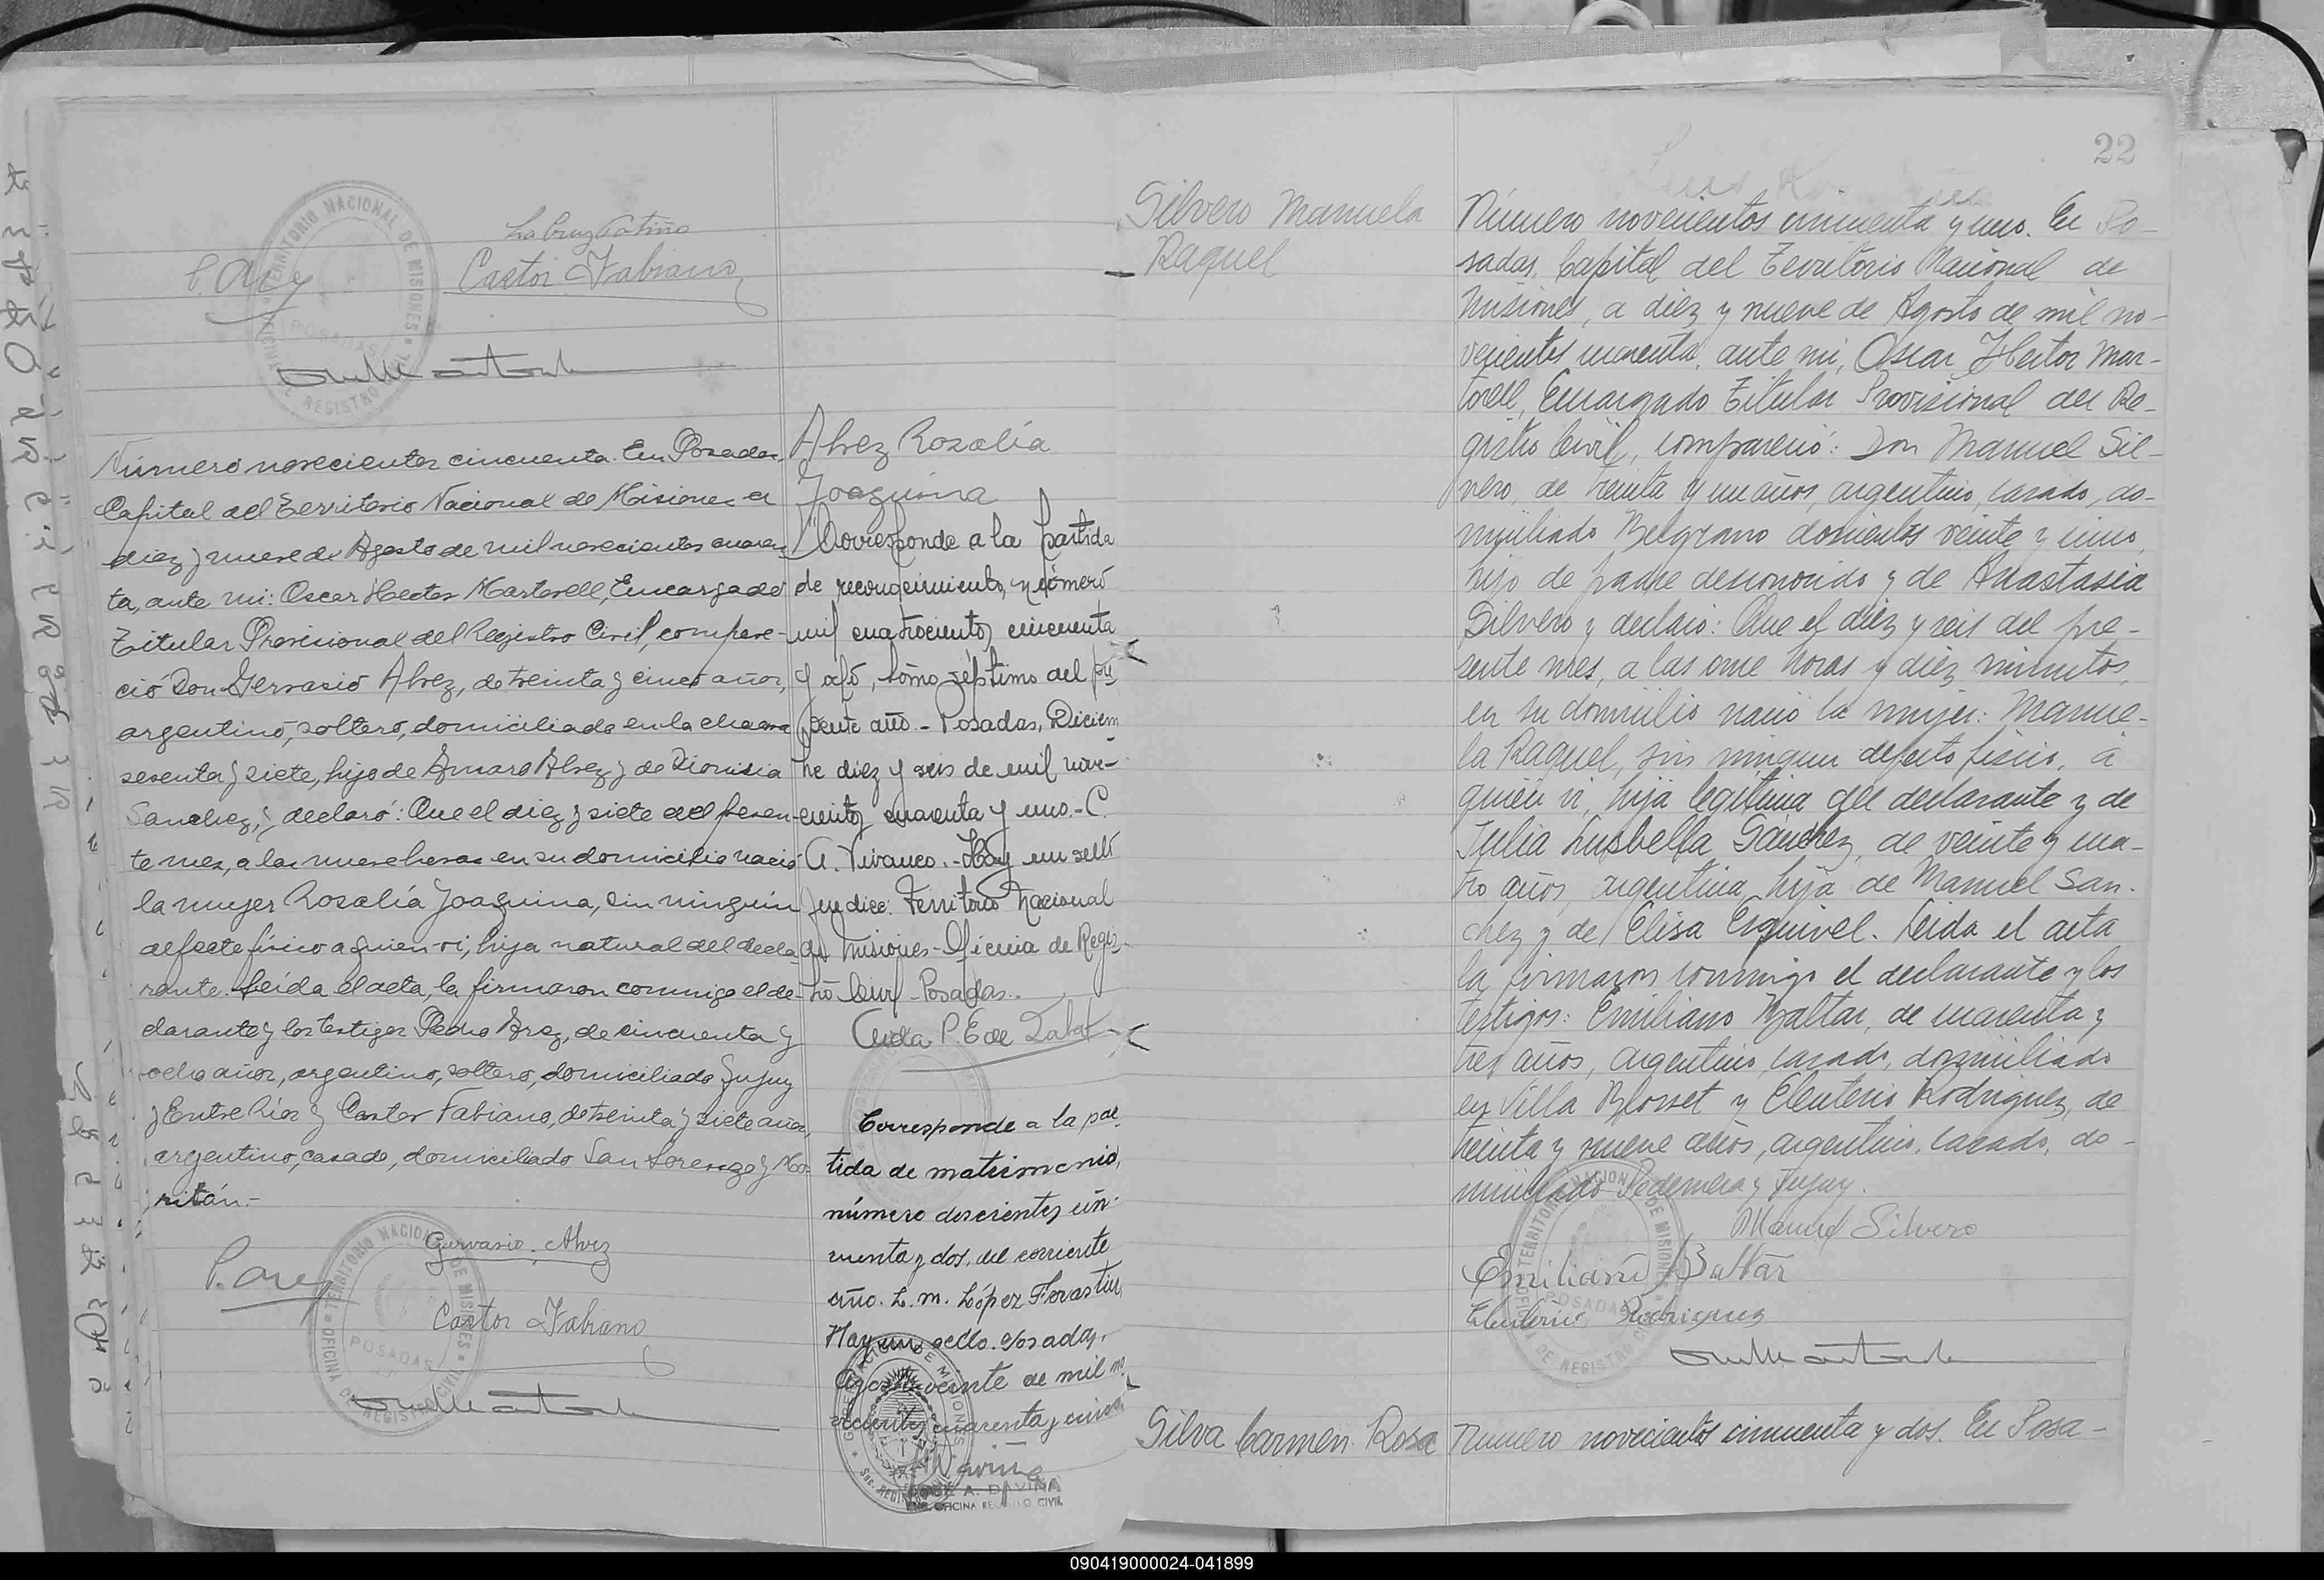 La Cruz Patiño
P. Arey
Castor Fabiano
TERRITORIO NACIONAL DE MISIONES
OFICINA DE REGISTRO CIVIL
POSADAS
Número novecientos cincuenta. En Posadas
Capital del Territorio Nacional de Misiones a
diez y nueve de Agosto de mil novecientos cuaren
ta, ante mi: Oscar Hector Martorell, Encargado
Titular Provisional del Registro Civil, compare-
ció Don Gervasio Alvez, de treinta y cinco años,
argentino, soltero, domiciliado en la chacra
sesenta y siete, hijo de Amaro Alvez y de Dionisia
Sanchez, y declaró: Que el diez y siete del presen-
te mes, a las nueve horas en su domicilio nació
la mujer Rosalía Joaquina, sin ningún
defecto físico a quien vi, hija natural del decla-
rante. Leída el acta, la firmaron conmigo el de-
clarante y los testigos Pedro Arez, de cincuenta y
ocho años, argentino, soltero, domiciliado Jujuy
y Entre Ríos y Castor Fabiano, de treinta y siete años,
argentino, casado, domiciliado San Lorenzo y
Gervasio Alvez
Castor Fabiano
TERRITORIO NACIONAL DE MISIONES
OFICINA DE REGISTRO CIVIL
POSADAS
Alvez Rosalía
Joaquina
"Corresponde a la partida
de reconocimiento, número
mil cuatrocientos cincuenta
y ocho, tomo séptimo del pre
sente año. - Posadas, Diciem
bre diez y seis de mil nove-
cientos cuarenta y uno. - C.
A. Vivanco. - Hay un sello
que dice: Territorio Nacional
de Misiones - Oficina de Regis-
tro Civil - Posadas.
P. E de
Corresponde a la par
tida de matrimonio,
número doscientos cin
cuenta y dos, del corriente
año. L. M. López Forastier
Hay un sello. Posadas,
Agosto veinte de mil no
vecientos cuarenta y cinco
JOSE A. DAVIÑA
ENC. OFICINA REGISTRO CIVIL
22
Silvero Manuela
Raquel
Número novecientos cincuenta y uno. En Po-
sadas, Capital del Territorio Nacional de
Misiones, a diez y nueve de Agosto de mil no-
vecientos cuarenta, ante mi, Oscar Hector Mar-
torell, Encargado Titular Provisional del Re-
gistro Civil, compareció: Don Manuel Sil-
vero, de treinta y un años, argentino, casado, do-
miciliado Belgrano doscientos veinte y cinco,
hijo de padre desconocido y de Anastasia
Silvero y declaró: Que el diez y seis del pre-
sente mes, a las once horas y diez minutos,
en su domicilio nació la mujer: Manue-
la Raquel, sin ningun defecto físico, a
quien vi, hija legítima del declarante y de
Julia Lusbella Sánchez, de veinte y cua-
tro años, argentina, hija de Manuel San-
chez y de Elisa Esquivel. Leída el acta
la firmaron conmigo el declarante y los
testigos: Emiliano Baltar, de cuarenta y
tres años, argentino, casado, domiciliado
en Villa Blosset y Eleuterio Rodriguez, de
treinta y nueve años, argentino, casado, do-
miciliado Pedernera y Jujuy.
Manuel Silvero
Emiliano Baltar
Eleuterio Rodriguez
TERRITORIO NACIONAL DE MISIONES
OFICINA DE REGISTRO CIVIL
POSADAS
Silva Carmen Rosa
Número novecientos cincuenta y dos. En Posa-
090419000024-041899